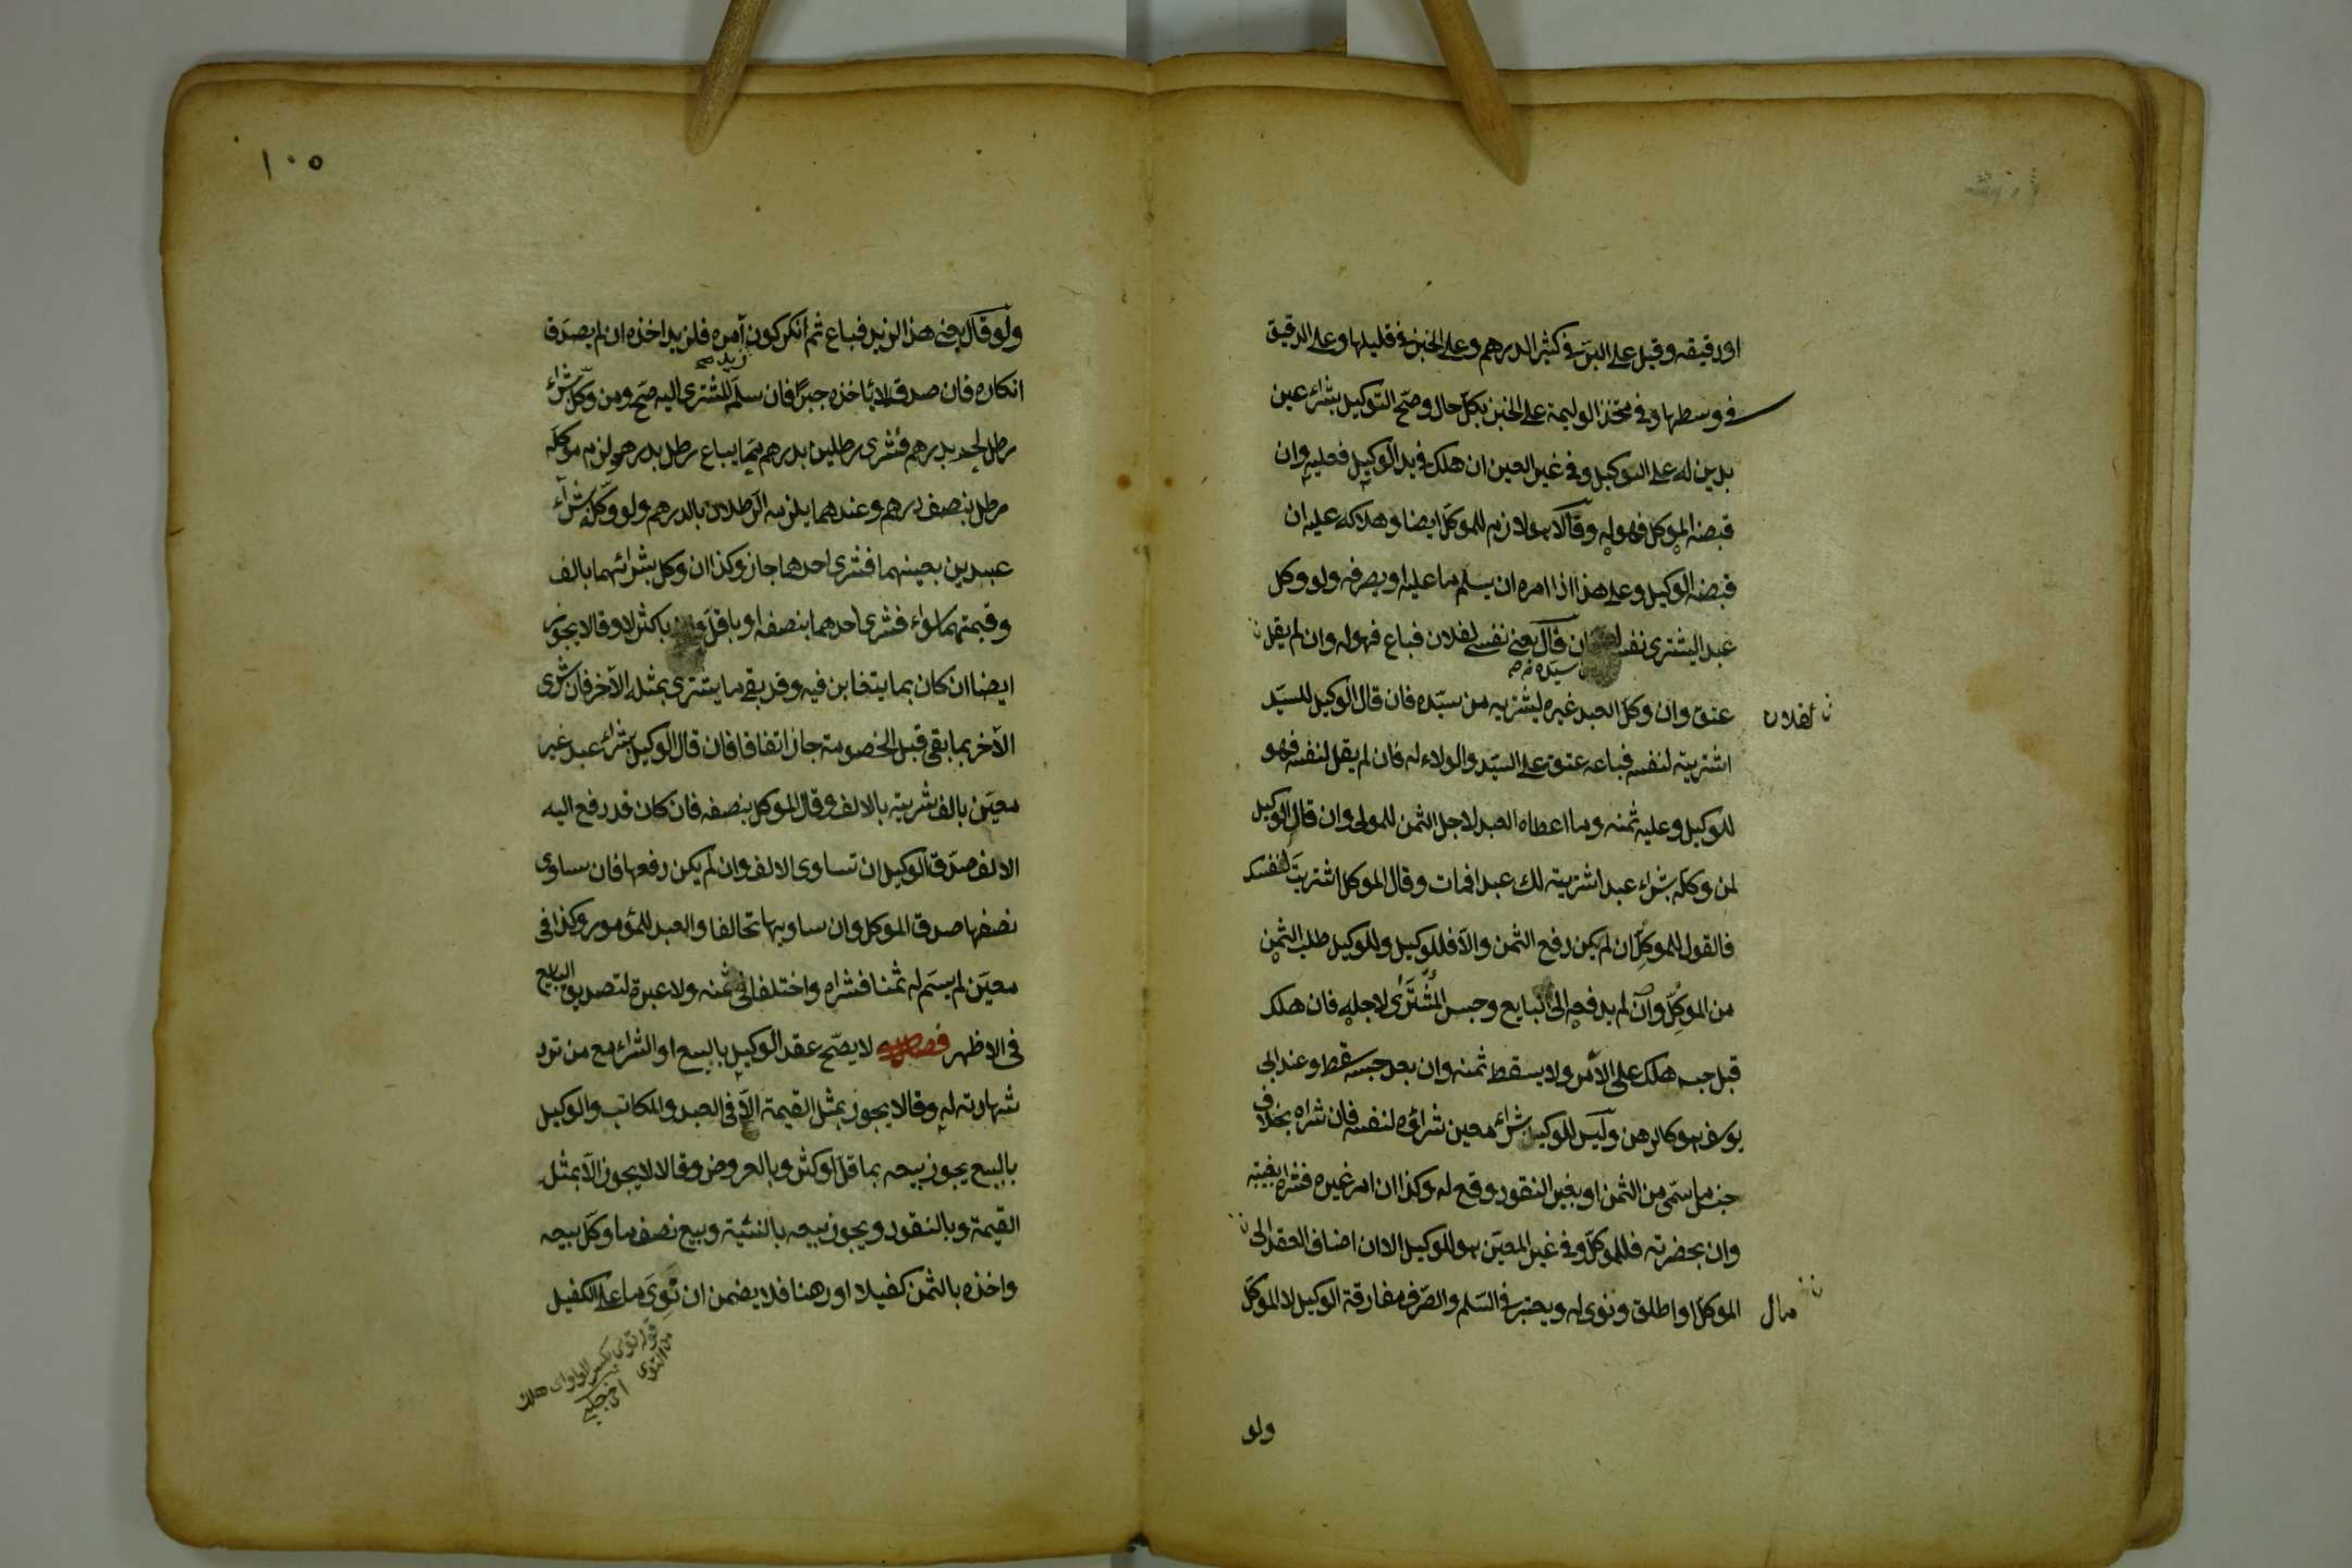 او دقيقه وقيل على البرّ في كثير الدرهم وعلى الخبز في قليلها وعلى الدقيق
في وسطها وفي متخذ الوليمة على الخبز بكلّ حال وصحّ التوكيل بشراء عين
بدين له على الوكيل وفي غير العين ان هلك في يد الوكيل فعليه وان
قبضه الموكل فهو له وقالا هو لازم للموكّل ايضا وهلاكه عليه ان
قبضه الوكيل وعلى هذا اذا امره ان يسلم ما عليه او يصرفه ولو وكل
عبدا ليشترى نفسه ان قال بعني نفسي لفلان فباع فهو له وان لم يقل
سيده صح
عتق وان وكل العبد غيره ليشتريه من سيّده فان قال الوكيل للسيّد
لفلان
اشتريته لنفسه فباعه عتق على السيّد والولاء له فان لم يقل لنفسه فهو
للوكيل وعليه ثمنه وما اعطاه العبد لاجل الثمن للمولى وان قال الوكيل
لمن وكله بشراء عبد اشتريته لك عبدا فمات وقال الموكل اشتريت لنفسك
فالقول للموكل ان لم يكن دفع الثمن والّا فللوكيل وللوكيل طلب الثمن
من الموكل وان لم يدفعه الى البايع وحبس المشترى لاجله فان هلك
قبل حبسه هلك على الآمر ولا يسقط ثمنه وان بعد حبسه سقط وعند ابى
يوسف هو كالرهن وليس للوكيل بشراء معين شراؤه لنفسه فان شراه بخلاف
جنس ما سمّى من الثمن او بغير النقود وقع له وكذا ان امر غيره فشراه بغيبته
وان بحضرته فللموكّل وفي غير المعيّن هو للوكيل الا ان اضاف العقد الى
مال
الموكل او اطلق ونوى له ويعتبر في السّلم والصّرف مفارقة الوكيل لا الموكّل
ولو
١٠٥
ولو قال بعني هذا لزيد فباع ثم انكر كون آمره فلزيد اخذه ان لم يصدق
زيد صح
انكاره فان صدق لا ياخذه جبرًا فان سلّم المشترى اليه صحّ ومن وكّل بشراء
رطل لحم بدرهم فشرى رطلين بدرهم ممّا يباع رطل بدرهم لزم موكّله
رطل بنصف درهم وعندهما يلزمه الرطلان بالدرهم ولو وكّل بشراء
عبدين بعينهما فشرى احدهما جاز وكذا ان وكل بشرائهما بالف
وقيمتهما سواء فشرى احدهما بنصفه او باقلّ وان باكثر لا وقالا يجوز
ايضا ان كان بما يتغابن فيه وقد بقى ما يشترى بمثله الآخر فان شرى
الآخر بما بقى قبل الخصومة جاز اتفاقا فان قال الوكيل بشراء عبد غير
معيّن بالف شريته بالالف وقال الموكل بنصفه فان كان قد دفع اليه
الالف صدّق الوكيل ان تساوى الالف وان لم يكن دفعها فان ساوى
نصفها صدق الموكل وان ساويها تحالفا والعبد للمومور وكذا في
معيّن لم يسمّ له ثمنا فشراه واختلفا في ثمنه ولا عبرة لتصديق البايع
في الاظهر فصل لا يصحّ عقد الوكيل بالبيع او الشراء مع من تردّ
شهادته له وقالا يجوز بمثل القيمة الّا في العبد والمكاتب والوكيل
بالبيع يجوز بيعه بما قلّ او كثر وبالعروض وقالا لا يجوز الّا بمثل
القيمة وبالنقود ويجوز بيعه بالنسئية وبيع نصف ما وكّل ببيعه
واخذه بالثمن كفيلا او رهنا فلا يضمن ان توى ما على الكفيل
قوله توى بكسر الواو اى هلك
من التوى
اخى چلبى